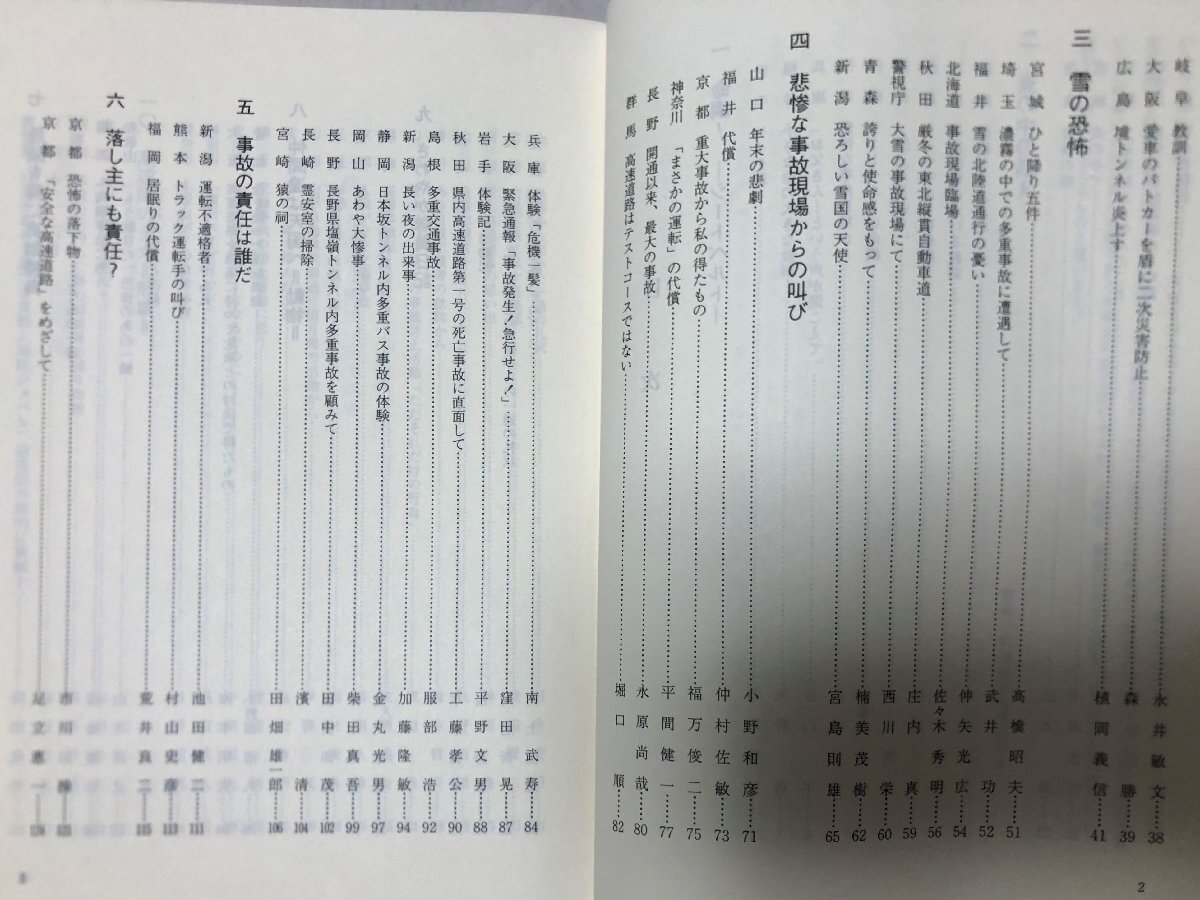 岐阜 教訓……永井敏文……38
大阪 愛車のパトカーを盾に二次災害防止……森 勝……39
広島 境トンネル炎上す……植岡義信……41
三 雪の恐怖
宮城 ひと降り五件……高橋昭夫……51
埼玉 濃霧の中での多重事故に遭遇して……武井 功……52
福井 雪の北陸道通行の憂い……仲矢光広……54
北海道 事故現場臨場……佐々木秀明……56
秋田 厳冬の東北縦貫自動車道……庄内 真……59
警視庁 大雪の事故現場にて……西川 栄……60
青森 誇りと使命感をもって……楠美茂樹……62
新潟 恐ろしい雪国の天使……宮島則雄……65
四 悲惨な事故現場からの叫び
山口 年末の悲劇……小野和彦……71
福井 代償……仲村佐敏……73
京都 重大事故から私の得たもの……福万俊二……75
神奈川 「まさかの運転」の代償……平間健一……77
長野 開通以来、最大の事故……永原尚哉……80
群馬 高速道路はテストコースではない……堀口 順……82
2
兵庫 体験「危機一髪」……南 武寿……84
大阪 緊急通報「事故発生!急行せよ!」……窪田 晃……87
岩手 体験記……平野文男……88
秋田 県内高速道路第一号の死亡事故に直面して……工藤孝公……90
島根 多重交通事故……服部 浩……92
新潟 長い夜の出来事……加藤隆敏……94
静岡 日本坂トンネル内多重バス事故の体験……金丸光男……97
岡山 あわや大惨事……柴田真吾……99
長野 長野県塩嶺トンネル内多重事故を顧みて……田中 茂……102
長崎 霊安室の掃除……濱 清……104
宮崎 猿の祠……田畑雄一郎……106
五 事故の責任は誰だ
新潟 運転不適格者……池田健二……111
熊本 トラック運転手の叫び……村山史彦……113
福岡 居眠りの代償……荒井良二……115
六 落し主にも責任?
京都 恐怖の落下物……市川
京都 「安全な高速道路」をめざして……足立憲一